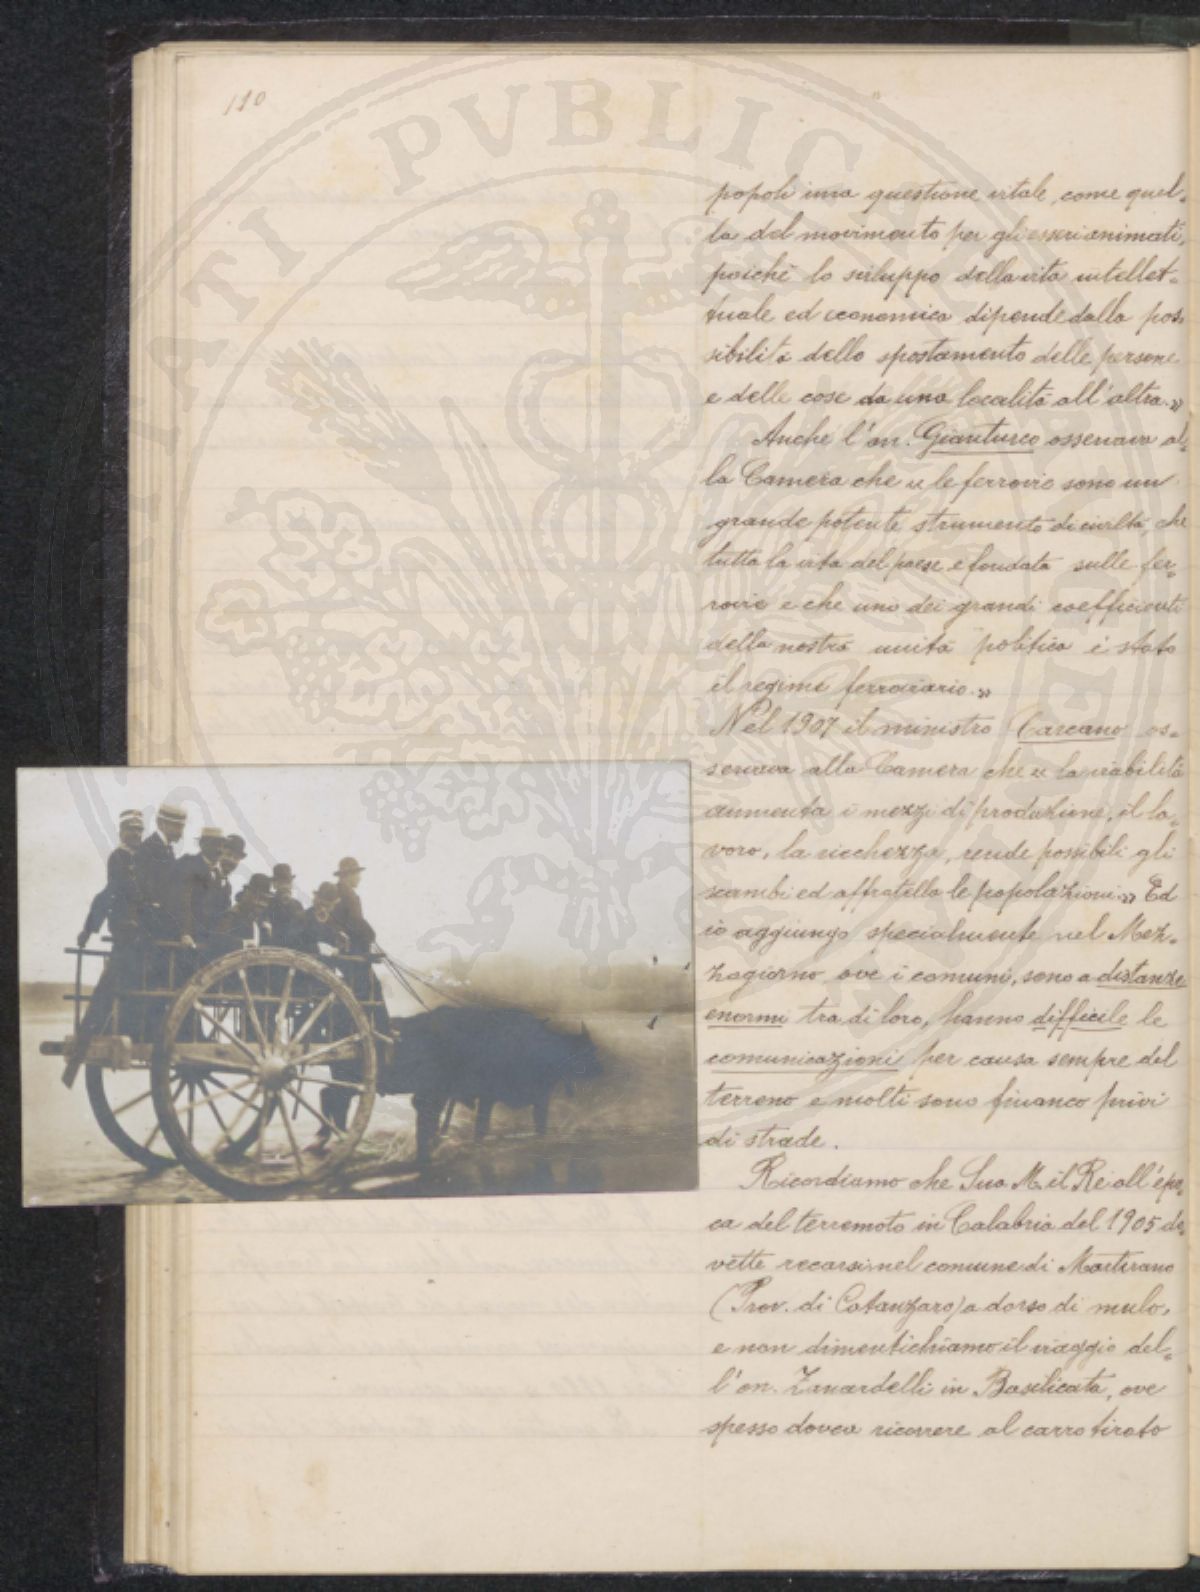 110
popoli una questione vitale, come quel-
la del movimento per gli esseri animati,
poichè lo sviluppo della vita intellet-
tuale ed economica dipende dalla pos-
sibilità dello spostamento delle persone
e delle cose da una località all'altra.»
Anche l'on. Gianturco osservava al-
la Camera che « le ferrovie sono un
grande potente strumento di civiltà, che
tutta la vita del paese è fondata sulle fer-
rovie e che uno dei grandi coefficienti
della nostra unità politica è stato
il regime ferroviario.»
Nel 1907 il ministro Carcano os-
servava alla Camera che « la viabilità
aumenta i mezzi di produzione, il la-
voro, la ricchezza, rende possibili gli
scambi ed affratella le popolazioni.» Ed
io aggiungo specialmente nel Mez-
zogiorno ove i comuni, sono a distanze
enormi tra di loro, hanno difficile le
comunicazioni per causa sempre del
terreno e molti sono financo privi
di strade.
Ricordiamo che Sua M. il Re all'épo-
ca del terremoto in Calabria del 1905 do-
vette recarsi nel comune di Martirano
(Prov. di Catanzaro) a dorso di mulo,
e non dimentichiamo il viaggio del-
l'on. Zanardelli in Basilicata, ove
spesso dovea ricorrere al carro tirato
PVBLICA